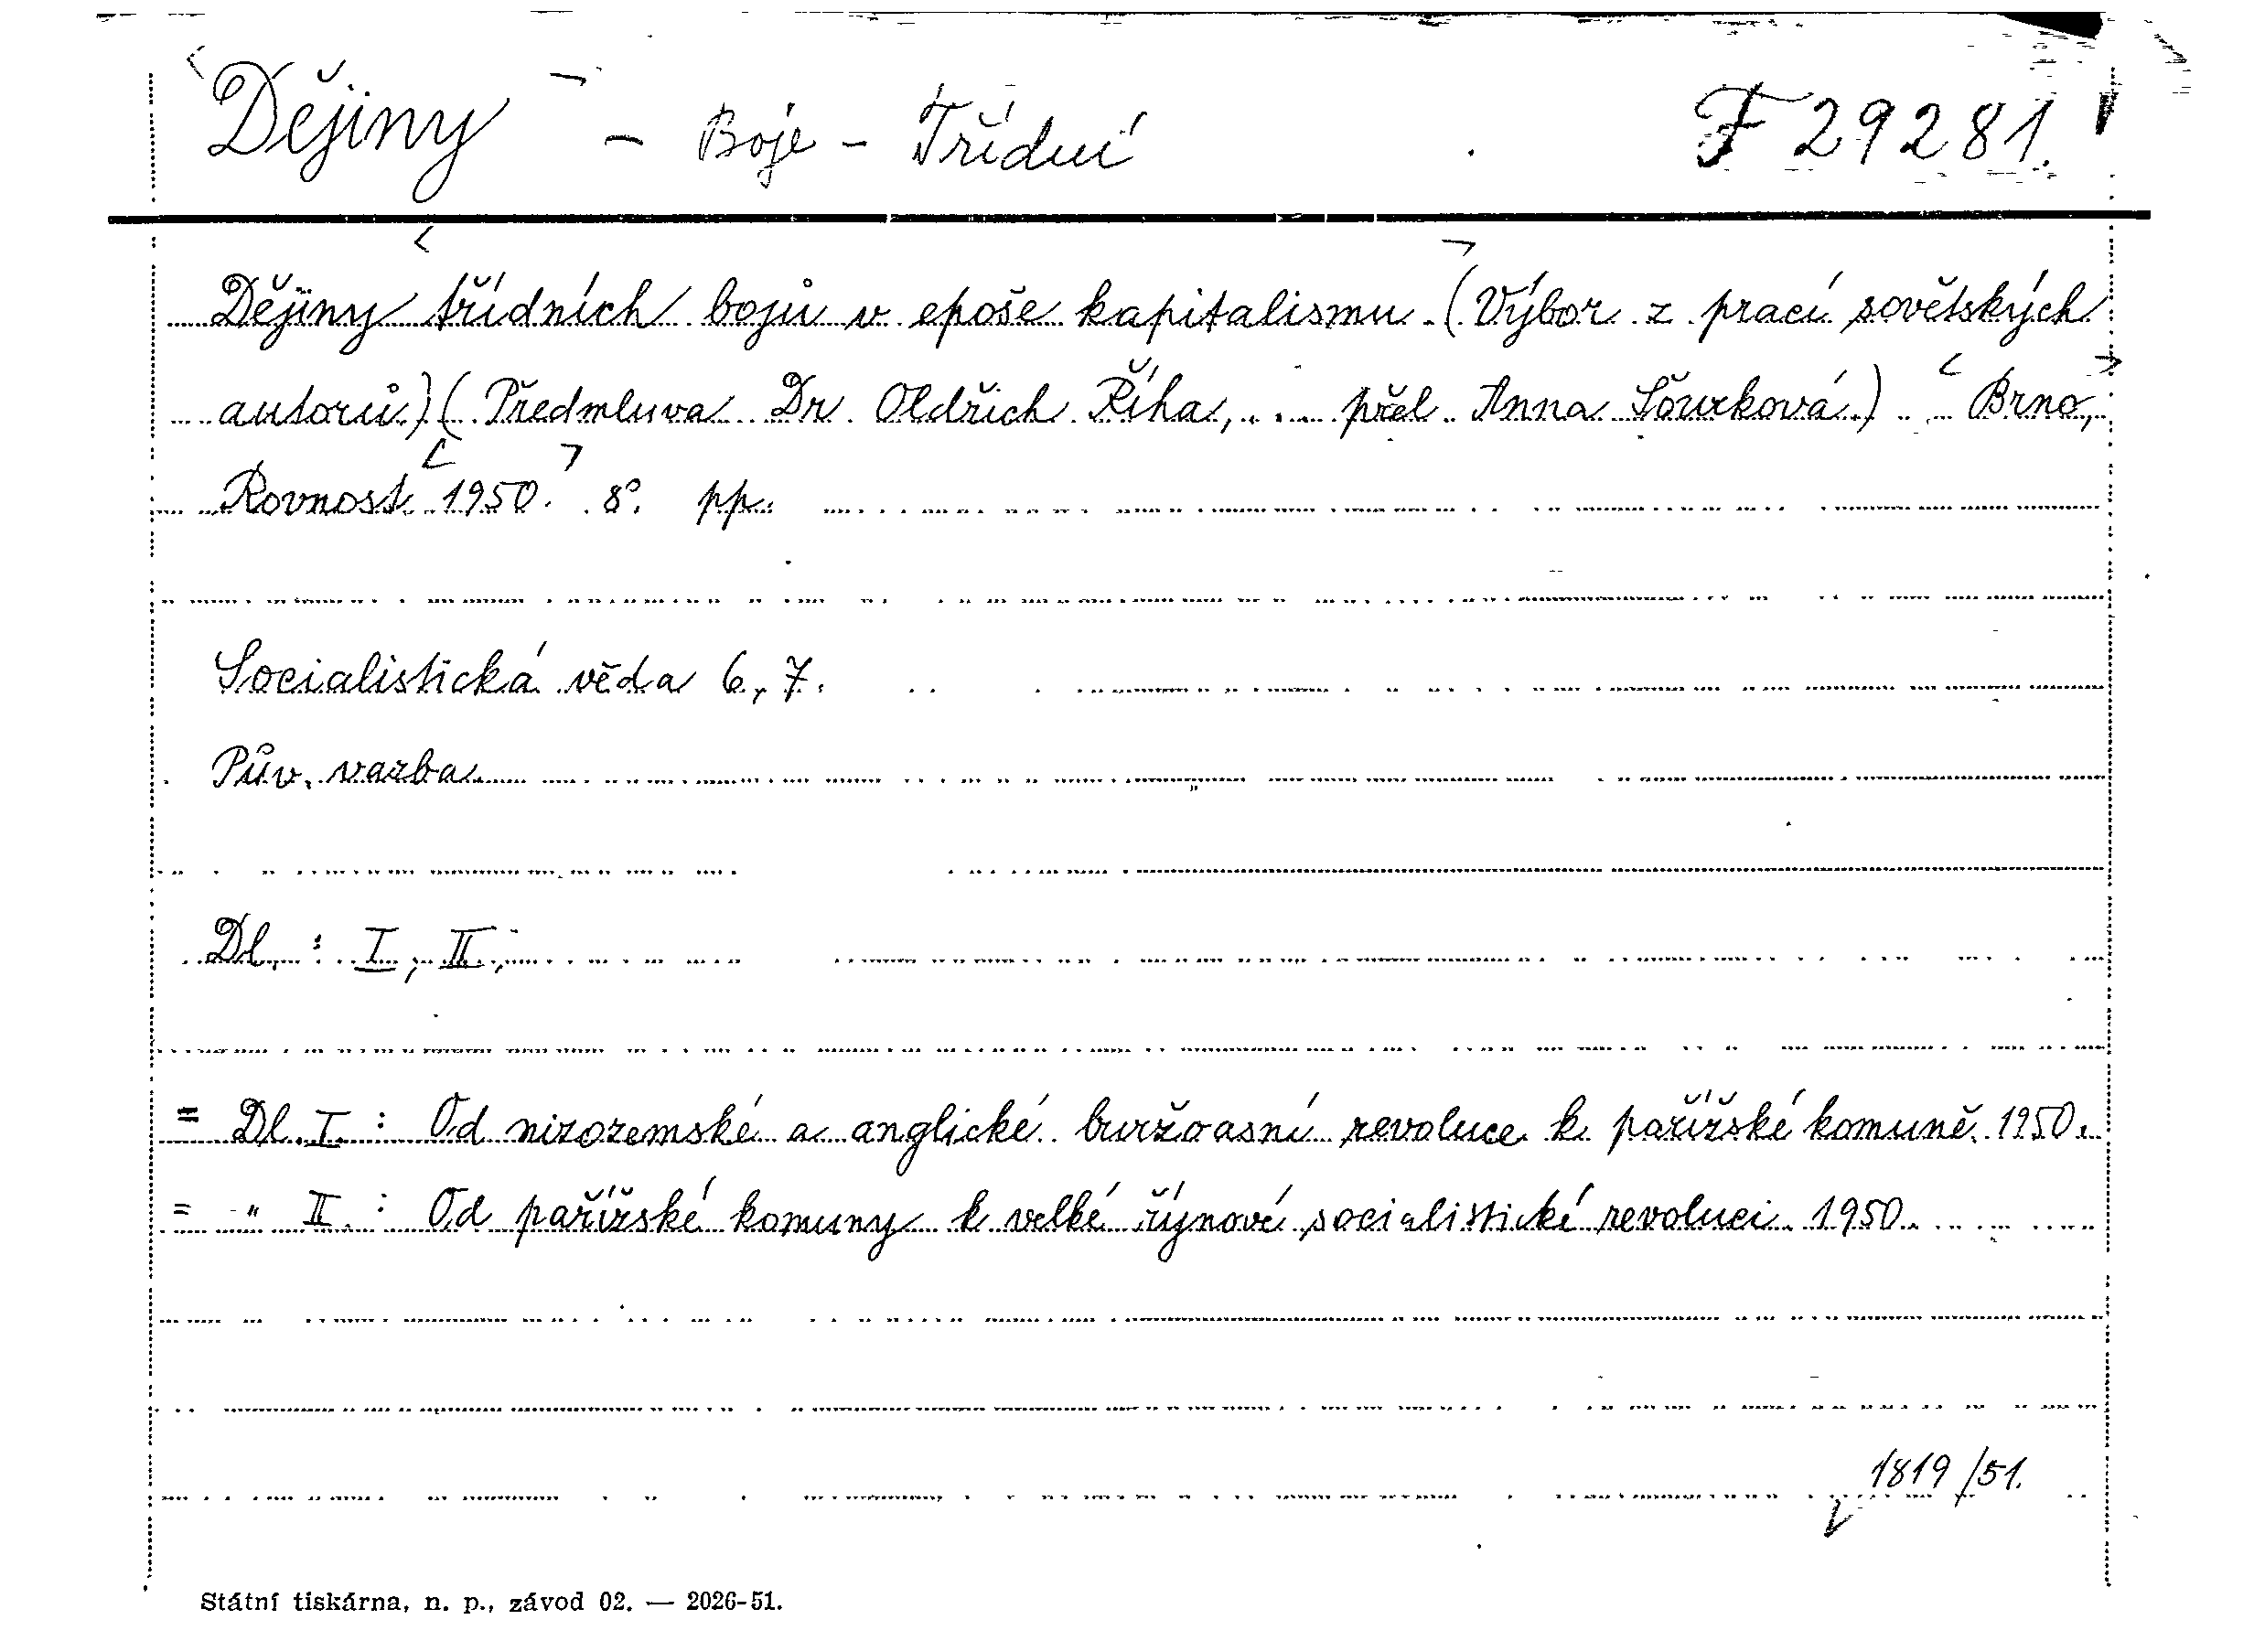 Dějiny - Boje - Třídní F 29281.
Dějiny třídních bojů v epoše kapitalismu. (Výbor z prací sovětských
autorů.) (Předmluva Dr. Oldřich Říha, ... přel. Anna) Brno,
Rovnost 1950. 8°. pp.
Socialistická věda 6, 7.
Pův. vazba.
Dl. : I, II,
= Dl. I. : Od nizozemské a anglické buržoasní revoluce k pařížské komuně. 1950.
= " II. : Od pařížské komuny k velké říjnové socialistické revoluci. 1950.
1819/51.
Státní tiskárna, n. p., závod 02. — 2026-51.